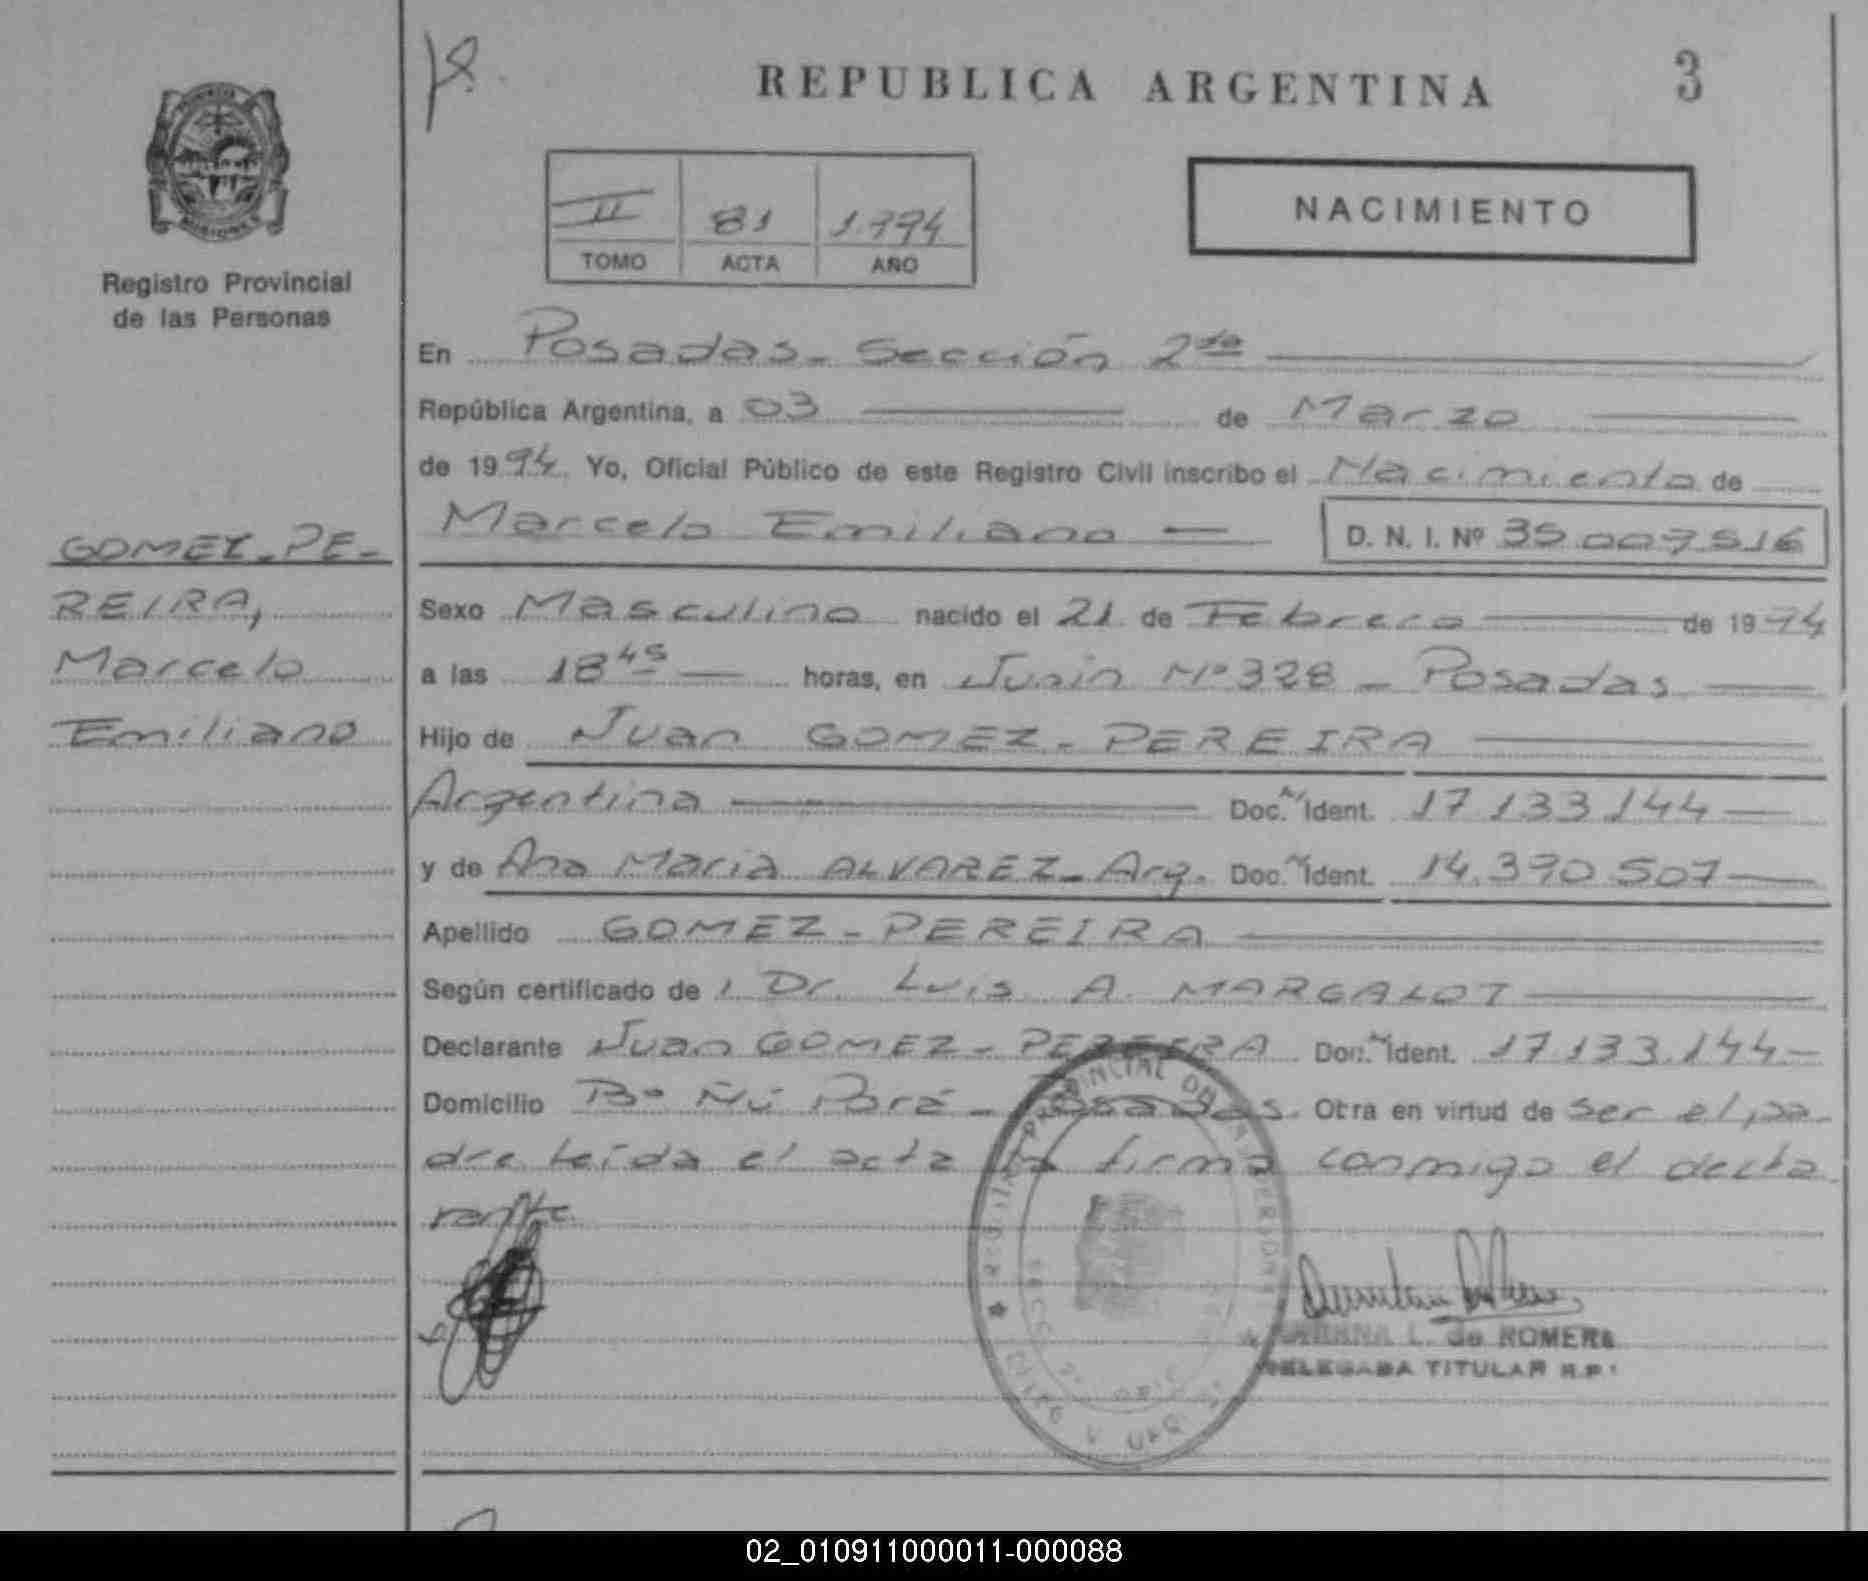 REPUBLICA ARGENTINA
3
II 81 1.994
TOMO ACTA AÑO
NACIMIENTO
Registro Provincial
de las Personas
En Posadas - Sección 2da
República Argentina, a 03 de Marzo
de 1994. Yo, Oficial Público de este Registro Civil inscribo el Nacimiento de
Marcelo Emiliano D. N. I. Nº 35.007516
GOMEZ-PE-
REIRA,
Marcelo
Emiliano
Sexo Masculino nacido el 21 de Febrero de 1994
a las 18 45 horas, en Junin Nº 328 - Posadas
Hijo de Juan GOMEZ-PEREIRA
Argentina Doc. Ident. 17.133.144
y de Ana Maria ALVAREZ - Arg. Doc. Ident. 14.390.507
Apellido GOMEZ-PEREIRA
Según certificado de Dr. Luis A. MARGALOT
Declarante Juan GOMEZ-PEREIRA Doc. Ident. 17.133.144
Domicilio Bº Ñú Porá - Posadas. Otra en virtud de ser el pa-
dre leída el acta la firma conmigo el decla
rante
L. de ROMERO
DELEGADA TITULAR R.P.
02_010911000011-000088